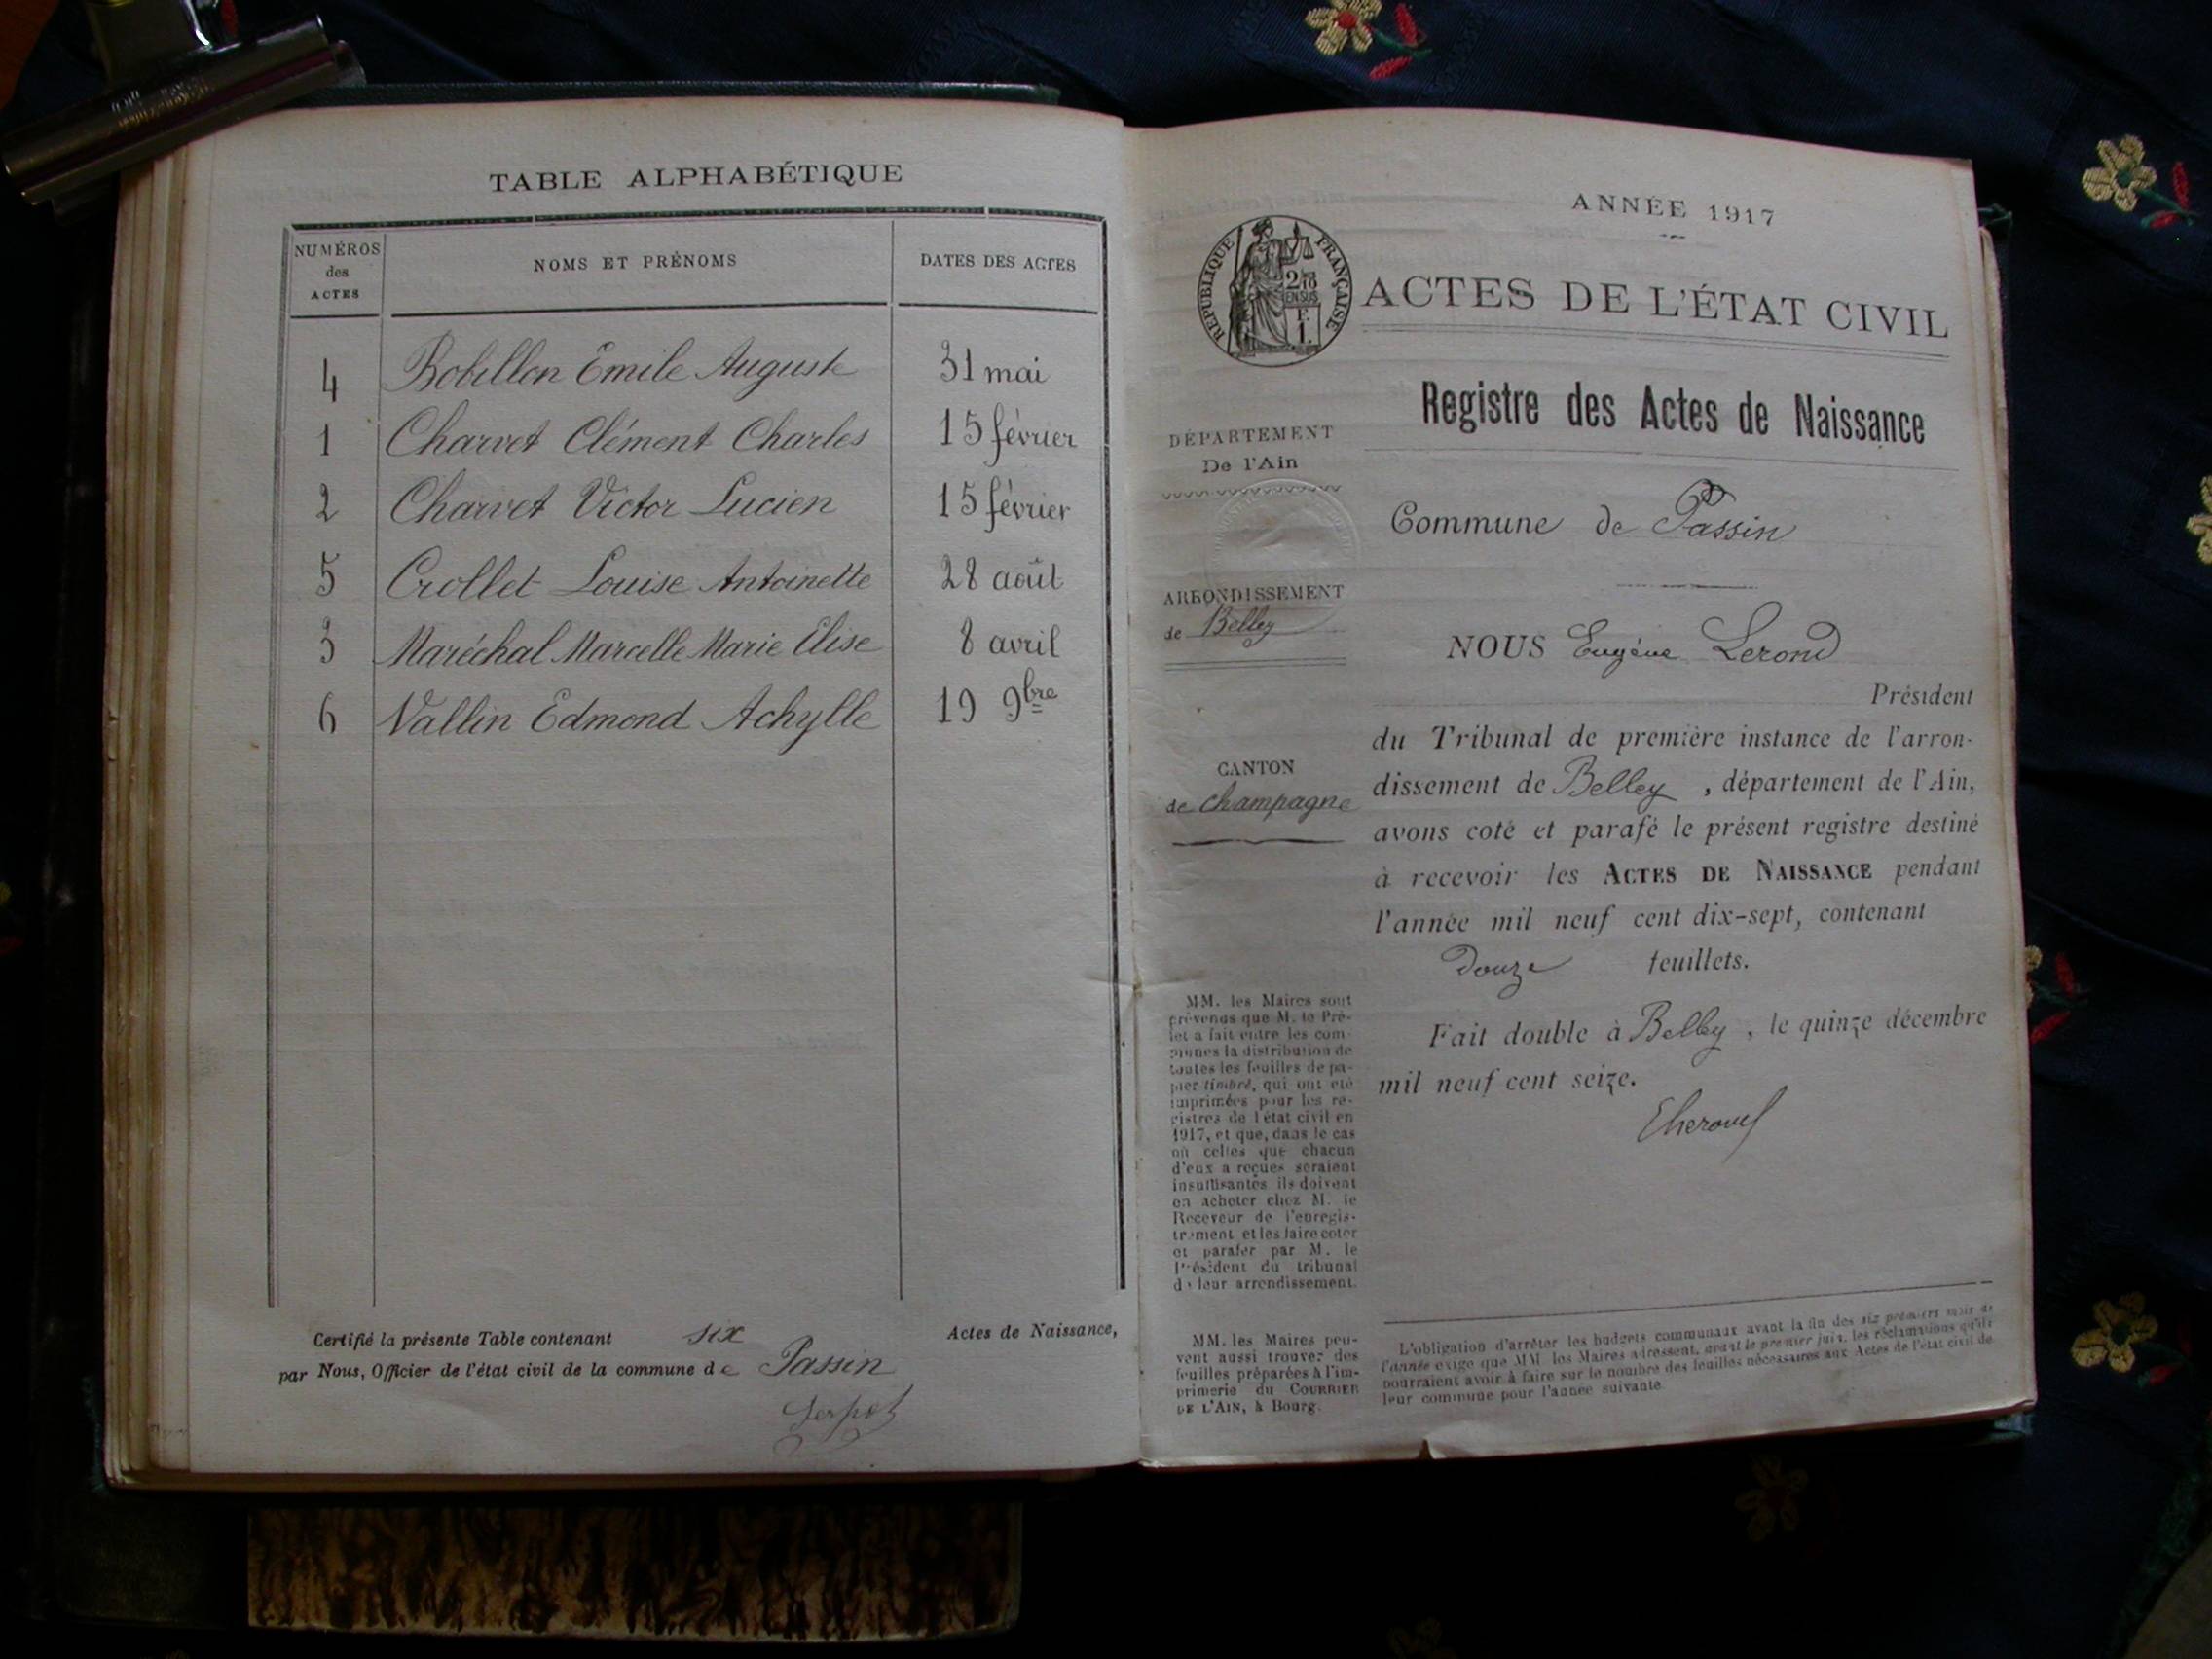 TABLE ALPHABÉTIQUE
NUMÉROS
des
ACTES
NOMS ET PRÉNOMS
DATES DES ACTES
4 Bobillon Emile Auguste 31 mai
1 Charvet Clément Charles 15 février
2 Charvet Victor Lucien 15 février
5 Crollet Louise Antoinette 28 août
3 Maréchal Marcelle Marie Elise 8 avril
6 Vallin Edmond Achylle 19 9bre
Certifié la présente Table contenant six Actes de Naissance,
par Nous, Officier de l'état civil de la commune de Passin
ANNÉE 1917
RÉPUBLIQUE FRANÇAISE
2/10
EN SUS
F.
1.
ACTES DE L'ÉTAT CIVIL
Registre des Actes de Naissance
DÉPARTEMENT
De l'Ain
Commune de Passin
ARRONDISSEMENT
de Belley
NOUS Eugène Lerond
Président
du Tribunal de première instance de l'arron-
dissement de Belley, département de l'Ain,
CANTON
de Champagne
avons coté et parafé le présent registre destiné
à recevoir les ACTES DE NAISSANCE pendant
l'année mil neuf cent dix-sept, contenant
Douze feuillets.
Fait double à Belley, le quinze décembre
mil neuf cent seize.
MM. les Maires sont
prévenus que M. le Pré-
fet a fait entre les com-
munes la distribution de
toutes les feuilles de pa-
pier timbré, qui ont été
imprimées pour les re-
gistres de l'état civil en
1917, et que, dans le cas
où celles que chacun
d'eux a reçues seraient
insuffisantes ils doivent
en acheter chez M. le
Receveur de l'enregis-
trement et les faire coter
et parafer par M. le
Président du tribunal
de leur arrondissement.
MM. les Maires peu-
vent aussi trouver des
feuilles préparées à l'im-
primerie du COURRIER
DE L'AIN, à Bourg.
L'obligation d'arrêter les budgets communaux avant la fin des six premiers mois de
l'année exige que MM. les Maires adressent, avant le premier juin, les réclamations qu'ils
pourraient avoir à faire sur le nombre des feuilles nécessaires aux Actes de l'état civil de
leur commune pour l'année suivante